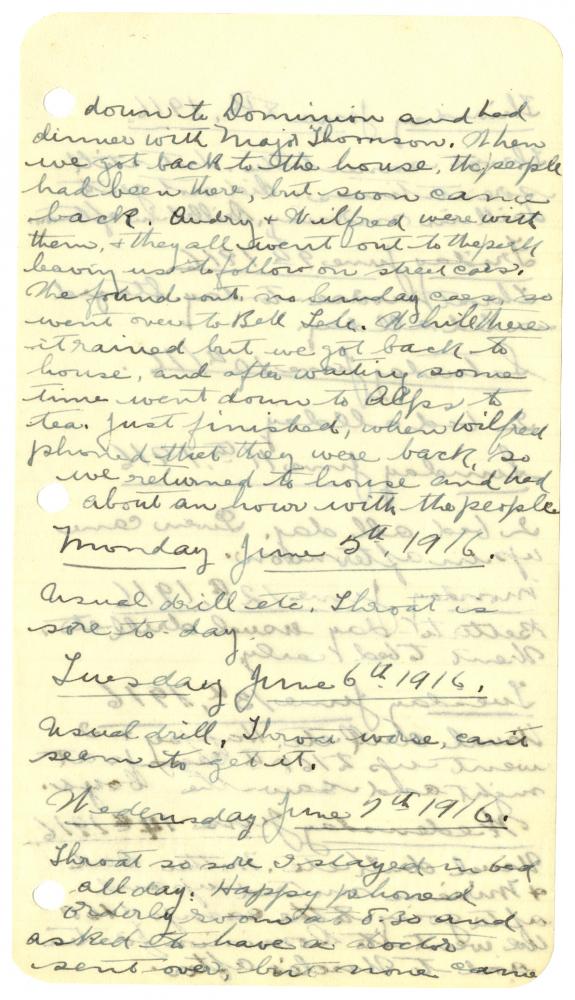 down to Dominion and had
dinner with Major Thomson. When
we got back to the house, the people
had been there, but soon came
back. Audry + Wilfred were with
them, + they all went out to the
leaving us to follow on street cars.
We found out no Sunday cars, so
went over to Bell Tele. While there
it rained but we got back to
house, and after waiting some
time went down to Alps to
tea. Just finished, when Wilfred
phoned that they were back, so
we returned to house and had
about an hour with the people
Monday. June 5th. 1916.
Usual drill etc. Throat is
sore to-day
Tuesday June 6th 1916.
Usual drill, Throat worse, can't
seem to get it.
Wedenusday June 7th 1916.
Throat so sore I stayed in bed
all day. Happy phoned
orderly room at 8.30 and
asked to have a doctor
sent over, but none came